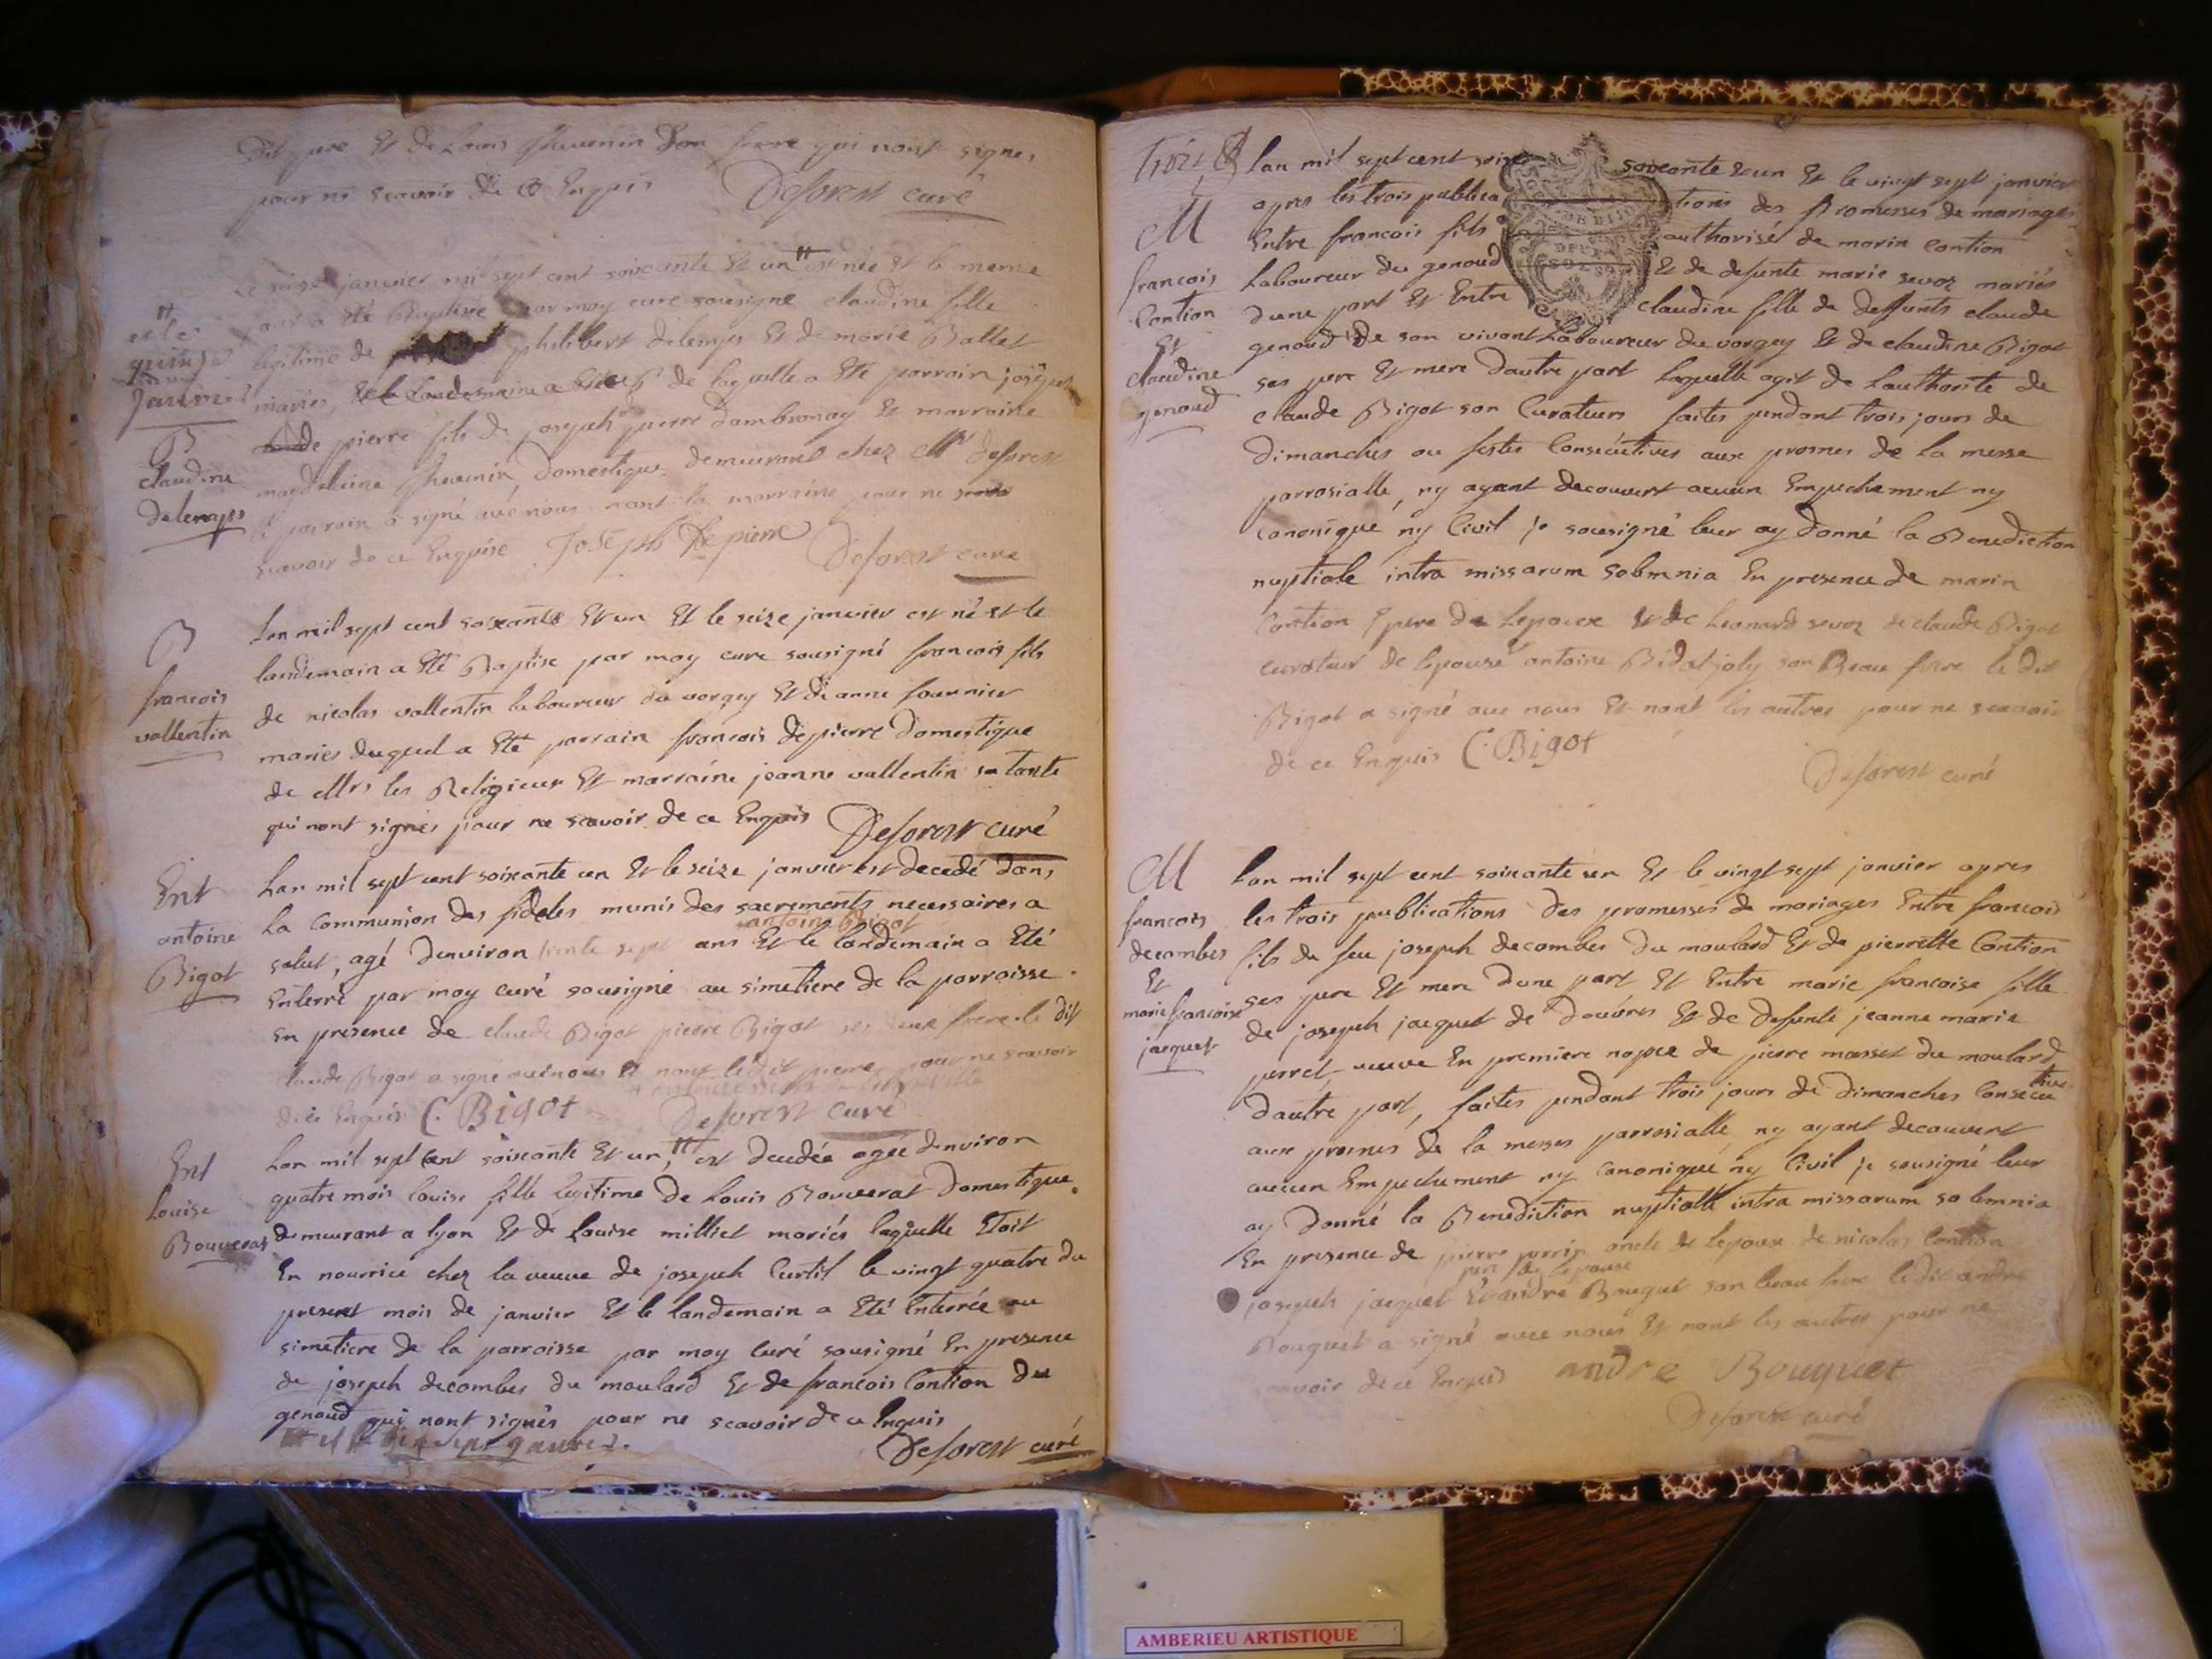 dit pere Et de Louis thevenin son frere qui nont signes
pour ne scavoir de ce Enquis Deforest curé
Le seize janvier mil sept cent soixante Et un est née Et le meme
jour a Eté Baptisée par moy curé sousigné claudine fille
legitime de philibert delemps Et de marie Ballet
mariés, de laquelle a Eté parrain joseph
de pierre fils de joseph pierre dambronay Et marraine
magdelaine thevenin domestique demeurant chez Mr deforest
le parrain a signé avec nous nont la marraine pour ne
scavoir de ce Enquise Joseph De pierre Deforest curé
et le
quinze
janvier
B
claudine
delemps
B
francois
vallentin
Lan mil sept cent soixante Et un Et le seize janvier est né et le
landemain a Eté Baptisé par moy curé sousigné francois fils
de nicolas vallentin laboureur du vorgey Et de anne fournier
mariés duquel a Eté parrain francois depierre domestique
de Mrs les Religieux Et marraine jeanne vallentin sa tante
qui nont signés pour ne scavoir de ce Enquis Deforest curé
Ent
antoine
Bigot
Lan mil sept cent soixante un Et le seize janvier est decedé dans
La Communion des fideles munis des sacrements necessaires a
antoine Bigot
salut, agé denviron trente sept ans Et le landemain a Eté
Enterré par moy curé sousigné au simetiere de la parroisse
En presence de claude Bigot pierre Bigot ses deux frere le dit
claude Bigot a signé avec nous Et nont ledit pierre pour ne scavoir
de ce Enquis C. Bigot Deforest curé
Ent
Louise
Bouverat
Lan mil sept Cent soixante Et un, est decedée agée denviron
quatre mois louise fille legitime de Louis Bouverat domestique
demeurant a lyon Et de Louise milliet mariés laquelle Etoit
En nourrice chez la veuve de joseph Curtil le vingt quatre du
present mois de janvier Et le landemain a Eté Enterrée au
simetiere de la parroisse par moy Curé sousigné En presence
de joseph decombes du moulard Et de francois Contion du
genoud qui nont signés pour ne scavoir de ce Enquis
Deforest curé
Trois
M
francois
Contion
Et
claudine
genoud
Lan mil sept cent soixante Et un Et le vingt sept janvier
apres les trois publications des Promesses de mariages
Entre francois fils authorisé de marin Contion
Laboureur du genoud Et de defunte marie sevoz mariés
dune part Et Entre claudine fille de deffunts claude
genoud de son vivant Laboureur du vorgey Et de claudine Bigot
ses pere Et mere dautre part Laquelle agit de Lauthorité de
claude Bigot son Curateurs faites pendant trois jours de
dimanches ou festes Consécutives aux prosnes de la messe
parrosialle, ny ayant decouvert aucun Empechement ny
canonique ny Civil je sousigné leur ay donné la Benediction
nuptiale intra missarum solemnia En presence de marin
Contion pere de Lepoux Et de Leonard sevoz de claude Bigot
curateur de lepouse antoine Bidal joly son Beau frere le dit
Bigot a signé avec nous Et nont les autres pour ne scavoir
de ce Enquis C. Bigot
Deforest curé
M
francois
decombes
Et
marie francoise
jacquet
Lan mil sept cent soixante un Et le vingt sept janvier apres
les trois publications des promesses de mariages Entre francois
fils de feu joseph decombes du moulard Et de pierrette Contion
ses pere Et mere dune part Et Entre marie francoise fille
de joseph jacquet de douvres Et de defunte jeanne marie
perret veuve En premiere nopce de pierre masset du moulard
dautre part, faites pendant trois jours de dimanches Consécutives
aux prosnes de la messes parrosialle, ny ayant decouvert
aucun Empechement ny canonique ny Civil je sousigné leur
ay donné la Benediction nuptialle intra missarum solemnia
En presence de pierre perrin oncle de lepoux de nicolas Contion
pere de lepouse
joseph jacquet Et andré Bouquet son beau frere le dit andré
Bouquet a signé avec nous Et nont les autres pour ne
scavoir de ce Enquis andre Bouquet
Deforest curé
AMBERIEU ARTISTIQUE